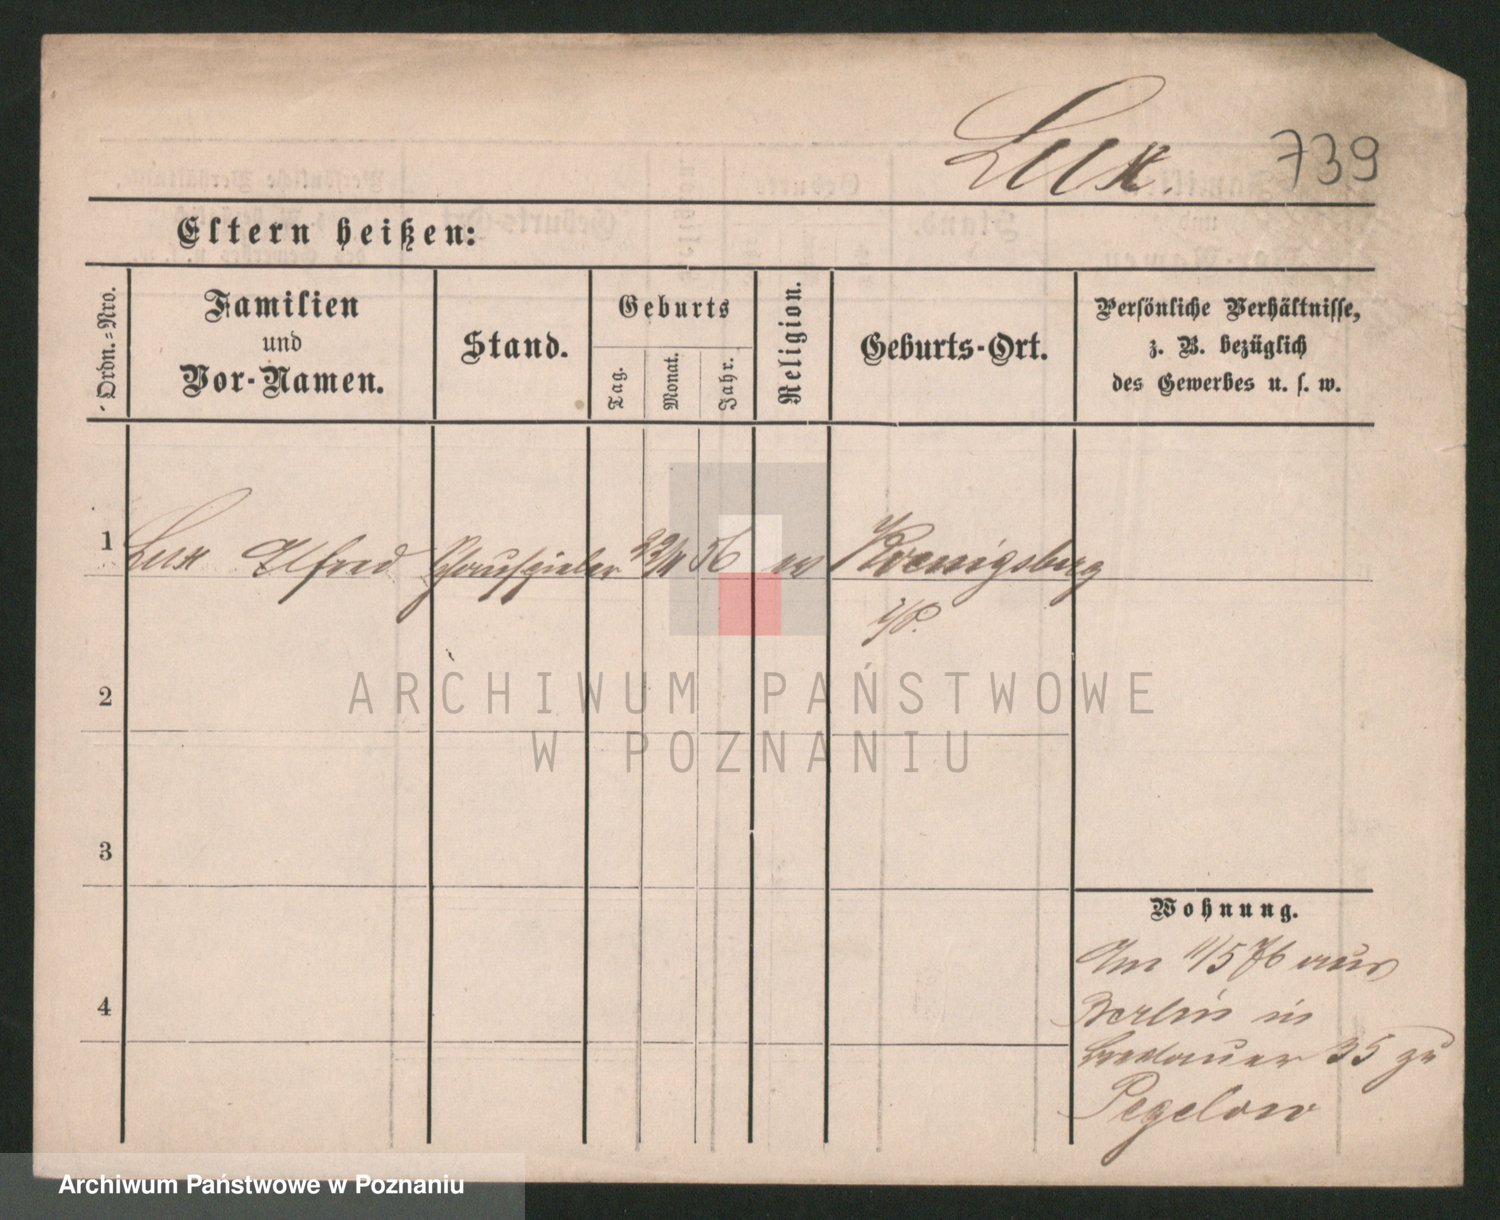 Lux. 739
Eltern heißen:
Ordn.-Nro.
Familien
und
Vor-Namen.
Stand.
Geburts
Tag.
Monat.
Jahr.
Religion.
Geburts-Ort.
Persönliche Verhältnisse,
z. B. bezüglich
des Gewerbes u. s. w.
1 Lux Alfred Schauspieler 56 ev Koenigsberg
i/P.
2
3
4
Wohnung.
Am 11/5 76 aus
Berlin in
Breslauer 35 zu
Pegelow
ARCHIWUM PAŃSTWOWE
W POZNANIU
Archiwum Państwowe w Poznaniu